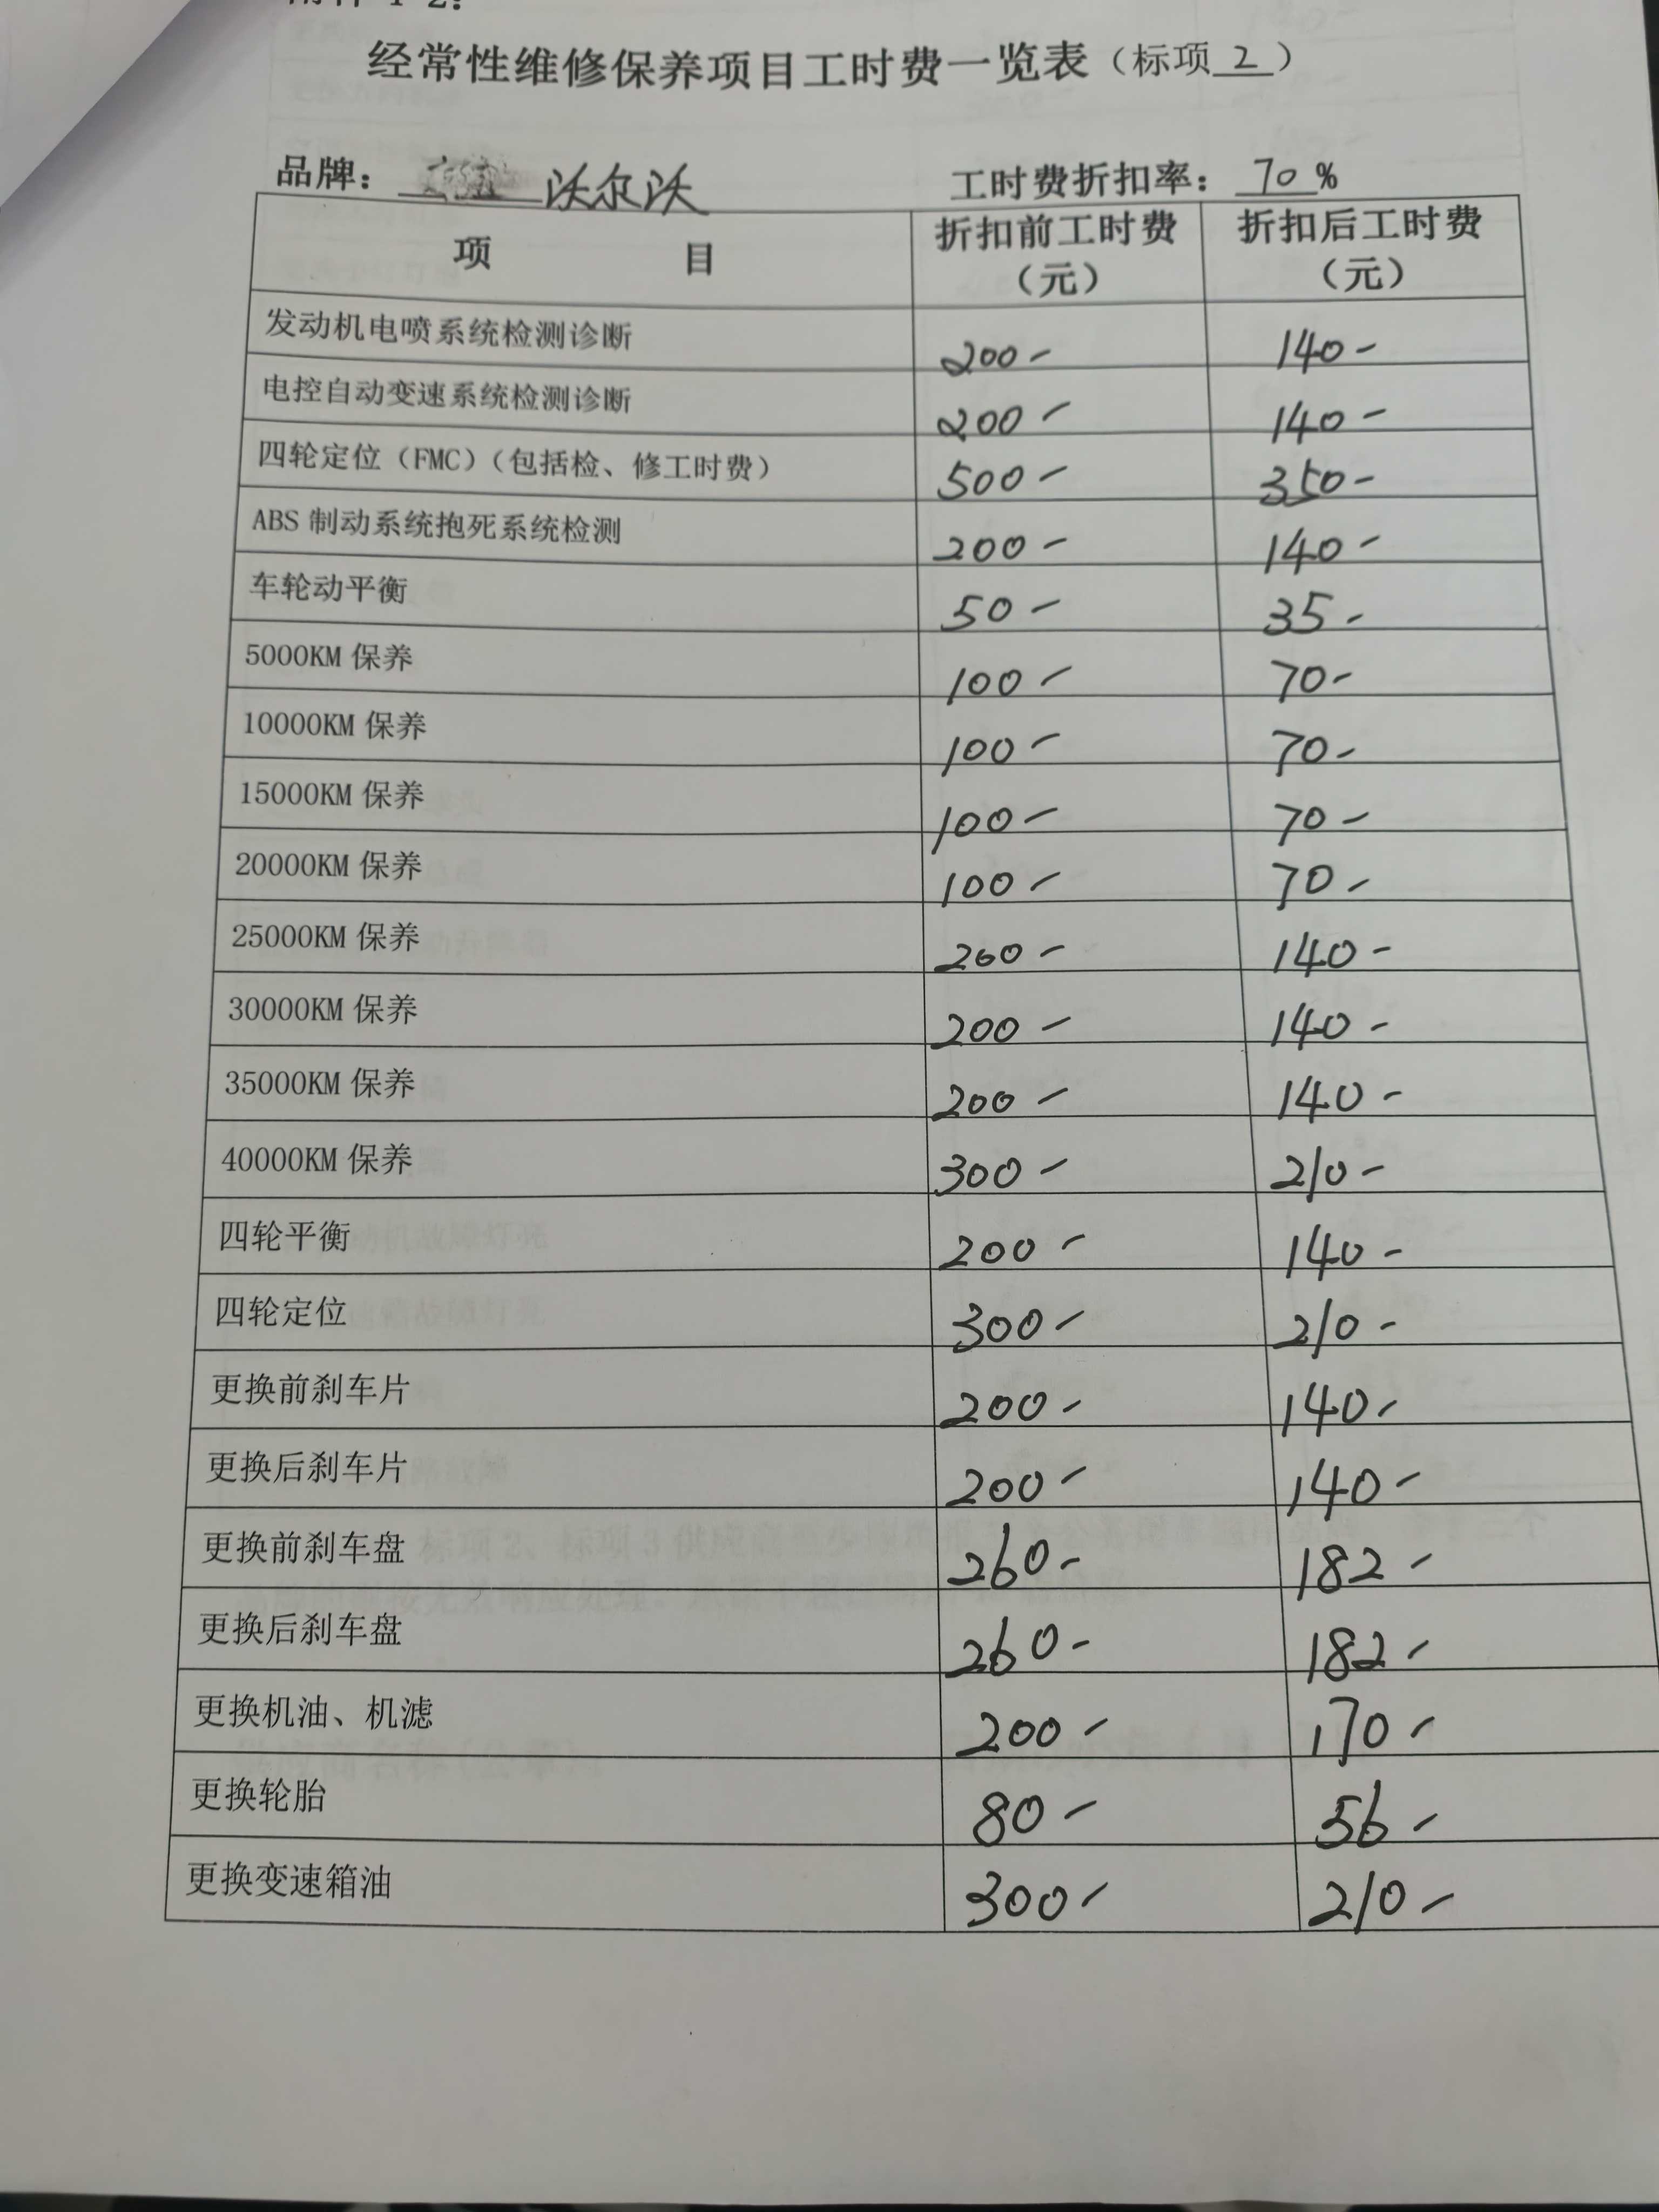 经常性维修保养项目工时费一览表（标项 2 ）
品牌： 沃尔沃 工时费折扣率： 70 %
项 目 折扣前工时费（元） 折扣后工时费（元）
发动机电喷系统检测诊断 200- 140-
电控自动变速系统检测诊断 200- 140-
四轮定位（FMC）（包括检、修工时费） 500- 350-
ABS 制动系统抱死系统检测 200- 140-
车轮动平衡 50- 35-
5000KM 保养 100- 70-
10000KM 保养 100- 70-
15000KM 保养 100- 70-
20000KM 保养 100- 70-
25000KM 保养 200- 140-
30000KM 保养 200- 140-
35000KM 保养 200- 140-
40000KM 保养 300- 210-
四轮平衡 200- 140-
四轮定位 300- 210-
更换前刹车片 200- 140-
更换后刹车片 200- 140-
更换前刹车盘 260- 182-
更换后刹车盘 260- 182-
更换机油、机滤 200- 170-
更换轮胎 80- 56-
更换变速箱油 300- 210-